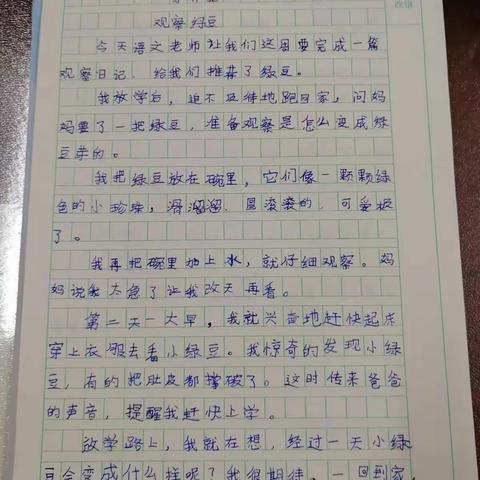 观察绿豆
今天语文老师让我们这周要完成一篇
观察日记，给我们推荐了绿豆。
我放学后，迫不及待地跑回家，问妈
妈要了一把绿豆，准备观察是怎么变成绿
豆芽的。
我把绿豆放在碗里，它们像一颗颗绿
色的小珍珠，滑溜溜，圆滚滚的，可爱极
了。
我再把碗里加上水，就仔细观察。妈
妈说我太急了让我改天再看。
第二天一大早，我就兴奋地赶快起床
穿上衣服去看小绿豆。我惊奇的发现小绿
豆，有的把肚皮都撑破了。这时传来爸爸
的声音，提醒我赶快上学。
放学路上，我就在想，经过一天小绿
豆会变成什么样呢？我很期待。一回到家，